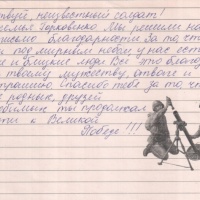 неизвестный солдат!
Горковенко. Мы решили на
письмо благодарности за то ст
под мирным небом у нас ест
и близкие люди. Всё это благо
твоему мужеству, отваге и
Спасибо тебе за то чт
родных, друзей
ты продолжал
ти к Великой
Победе!!!